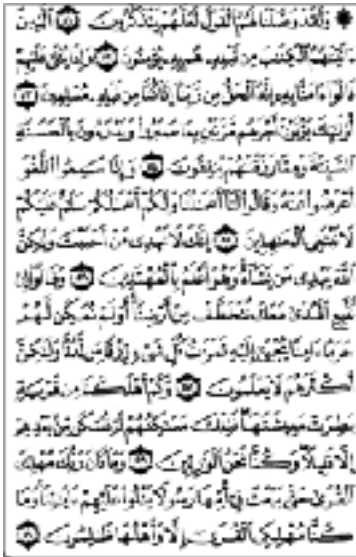 ۞ وَلَقَدْ وَصَّلْنَا لَهُمُ الْقَوْلَ لَعَلَّهُمْ يَتَذَكَّرُونَ ۝٥١ الَّذِينَ
ءَاتَيْنَاهُمُ الْكِتَابَ مِن قَبْلِهِ هُم بِهِ يُؤْمِنُونَ ۝٥٢ وَإِذَا يُتْلَىٰ عَلَيْهِمْ
قَالُوا ءَامَنَّا بِهِ إِنَّهُ الْحَقُّ مِن رَّبِّنَا إِنَّا كُنَّا مِن قَبْلِهِ مُسْلِمِينَ ۝٥٣
أُولَٰئِكَ يُؤْتَوْنَ أَجْرَهُم مَّرَّتَيْنِ بِمَا صَبَرُوا وَيَدْرَءُونَ بِالْحَسَنَةِ
السَّيِّئَةَ وَمِمَّا رَزَقْنَاهُمْ يُنفِقُونَ ۝٥٤ وَإِذَا سَمِعُوا اللَّغْوَ
أَعْرَضُوا عَنْهُ وَقَالُوا لَنَا أَعْمَالُنَا وَلَكُمْ أَعْمَالُكُمْ سَلَامٌ عَلَيْكُمْ
لَا نَبْتَغِي الْجَاهِلِينَ ۝٥٥ إِنَّكَ لَا تَهْدِي مَنْ أَحْبَبْتَ وَلَٰكِنَّ
اللَّهَ يَهْدِي مَن يَشَاءُ وَهُوَ أَعْلَمُ بِالْمُهْتَدِينَ ۝٥٦ وَقَالُوا إِن
نَّتَّبِعِ الْهُدَىٰ مَعَكَ نُتَخَطَّفْ مِنْ أَرْضِنَا أَوَلَمْ نُمَكِّن لَّهُمْ
حَرَمًا ءَامِنًا يُجْبَىٰ إِلَيْهِ ثَمَرَاتُ كُلِّ شَيْءٍ رِّزْقًا مِّن لَّدُنَّا وَلَٰكِنَّ
أَكْثَرَهُمْ لَا يَعْلَمُونَ ۝٥٧ وَكَمْ أَهْلَكْنَا مِن قَرْيَةٍ
بَطِرَتْ مَعِيشَتَهَا فَتِلْكَ مَسَاكِنُهُمْ لَمْ تُسْكَن مِّن بَعْدِهِمْ
إِلَّا قَلِيلًا وَكُنَّا نَحْنُ الْوَارِثِينَ ۝٥٨ وَمَا كَانَ رَبُّكَ مُهْلِكَ
الْقُرَىٰ حَتَّىٰ يَبْعَثَ فِي أُمِّهَا رَسُولًا يَتْلُو عَلَيْهِمْ ءَايَاتِنَا وَمَا
كُنَّا مُهْلِكِي الْقُرَىٰ إِلَّا وَأَهْلُهَا ظَالِمُونَ ۝٥٩